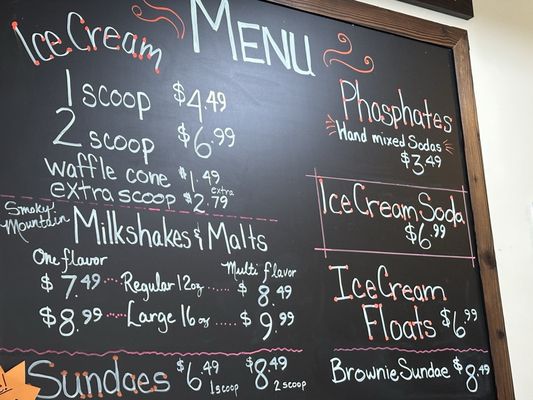 Menu
Ice Cream
1 scoop $4.49
2 scoop $6.99
waffle cone $1.49
extra
extra scoop $2.79
Smoky
Mountain
Milkshakes & Malts
One flavor
Multi flavor
$7.49 Regular 12oz $8.49
$8.99 Large 16oz $9.99
Sundaes $6.49 1 scoop $8.49 2 scoop
Phosphates
Hand mixed Sodas
$3.49
Ice Cream Soda
$6.99
Ice Cream
Floats $6.99
Brownie Sundae $8.49